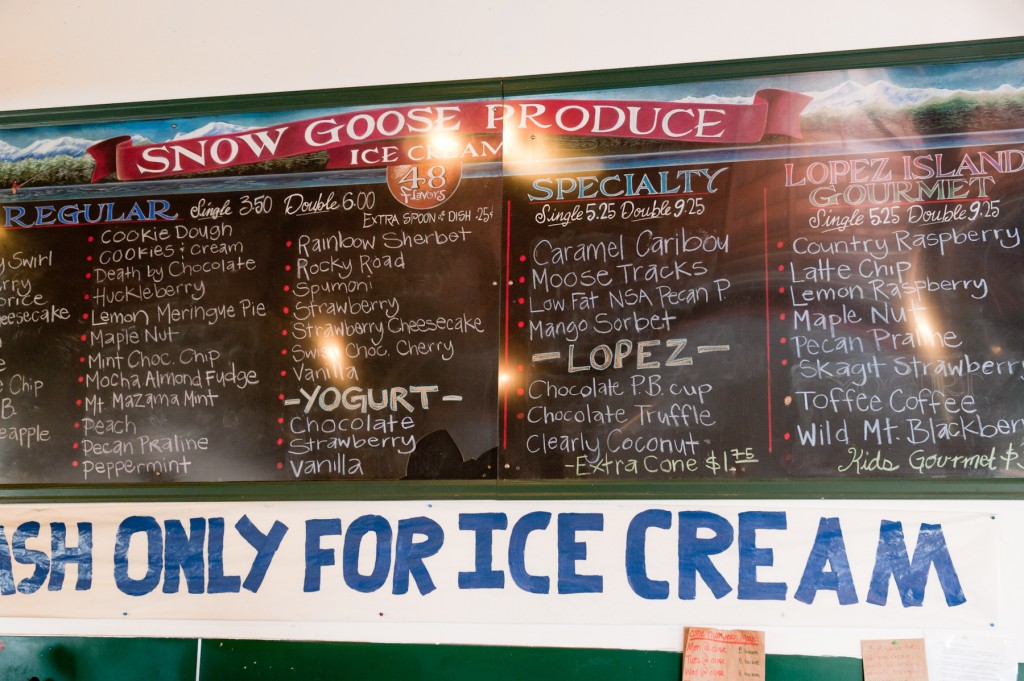 SNOW GOOSE PRODUCE
ICE CREAM
48
Flavors
REGULAR Single 3.50 Double 6.00
EXTRA SPOON & DISH .25¢
Swirl
eesecake
Chip
eapple
Cookie Dough
Cookies & Cream
Death by Chocolate
Huckleberry
Lemon Meringue Pie
Maple Nut
Mint Choc. Chip
Mocha Almond Fudge
Mt Mazama Mint
Peach
Pecan Praline
Peppermint
Rainbow Sherbet
Rocky Road
Spumoni
Strawberry
Strawberry Cheesecake
Swiss Choc. Cherry
Vanilla
-YOGURT-
Chocolate
Strawberry
Vanilla
SPECIALTY
Single 5.25 Double 9.25
Caramel Caribou
Moose Tracks
Low Fat NSA Pecan P.
Mango Sorbet
-LOPEZ-
Chocolate P.B. cup
Chocolate Truffle
Clearly Coconut
-Extra Cone $1.75
LOPEZ ISLAND
GOURMET
Single 5.25 Double 9.25
Country Raspberry
Latte Chip
Lemon Raspberry
Maple Nut
Pecan Praline
Skagit Strawberry
Toffee Coffee
Wild Mt. Blackberr
Kids Gourmet $
ASH ONLY FOR ICE CREAM